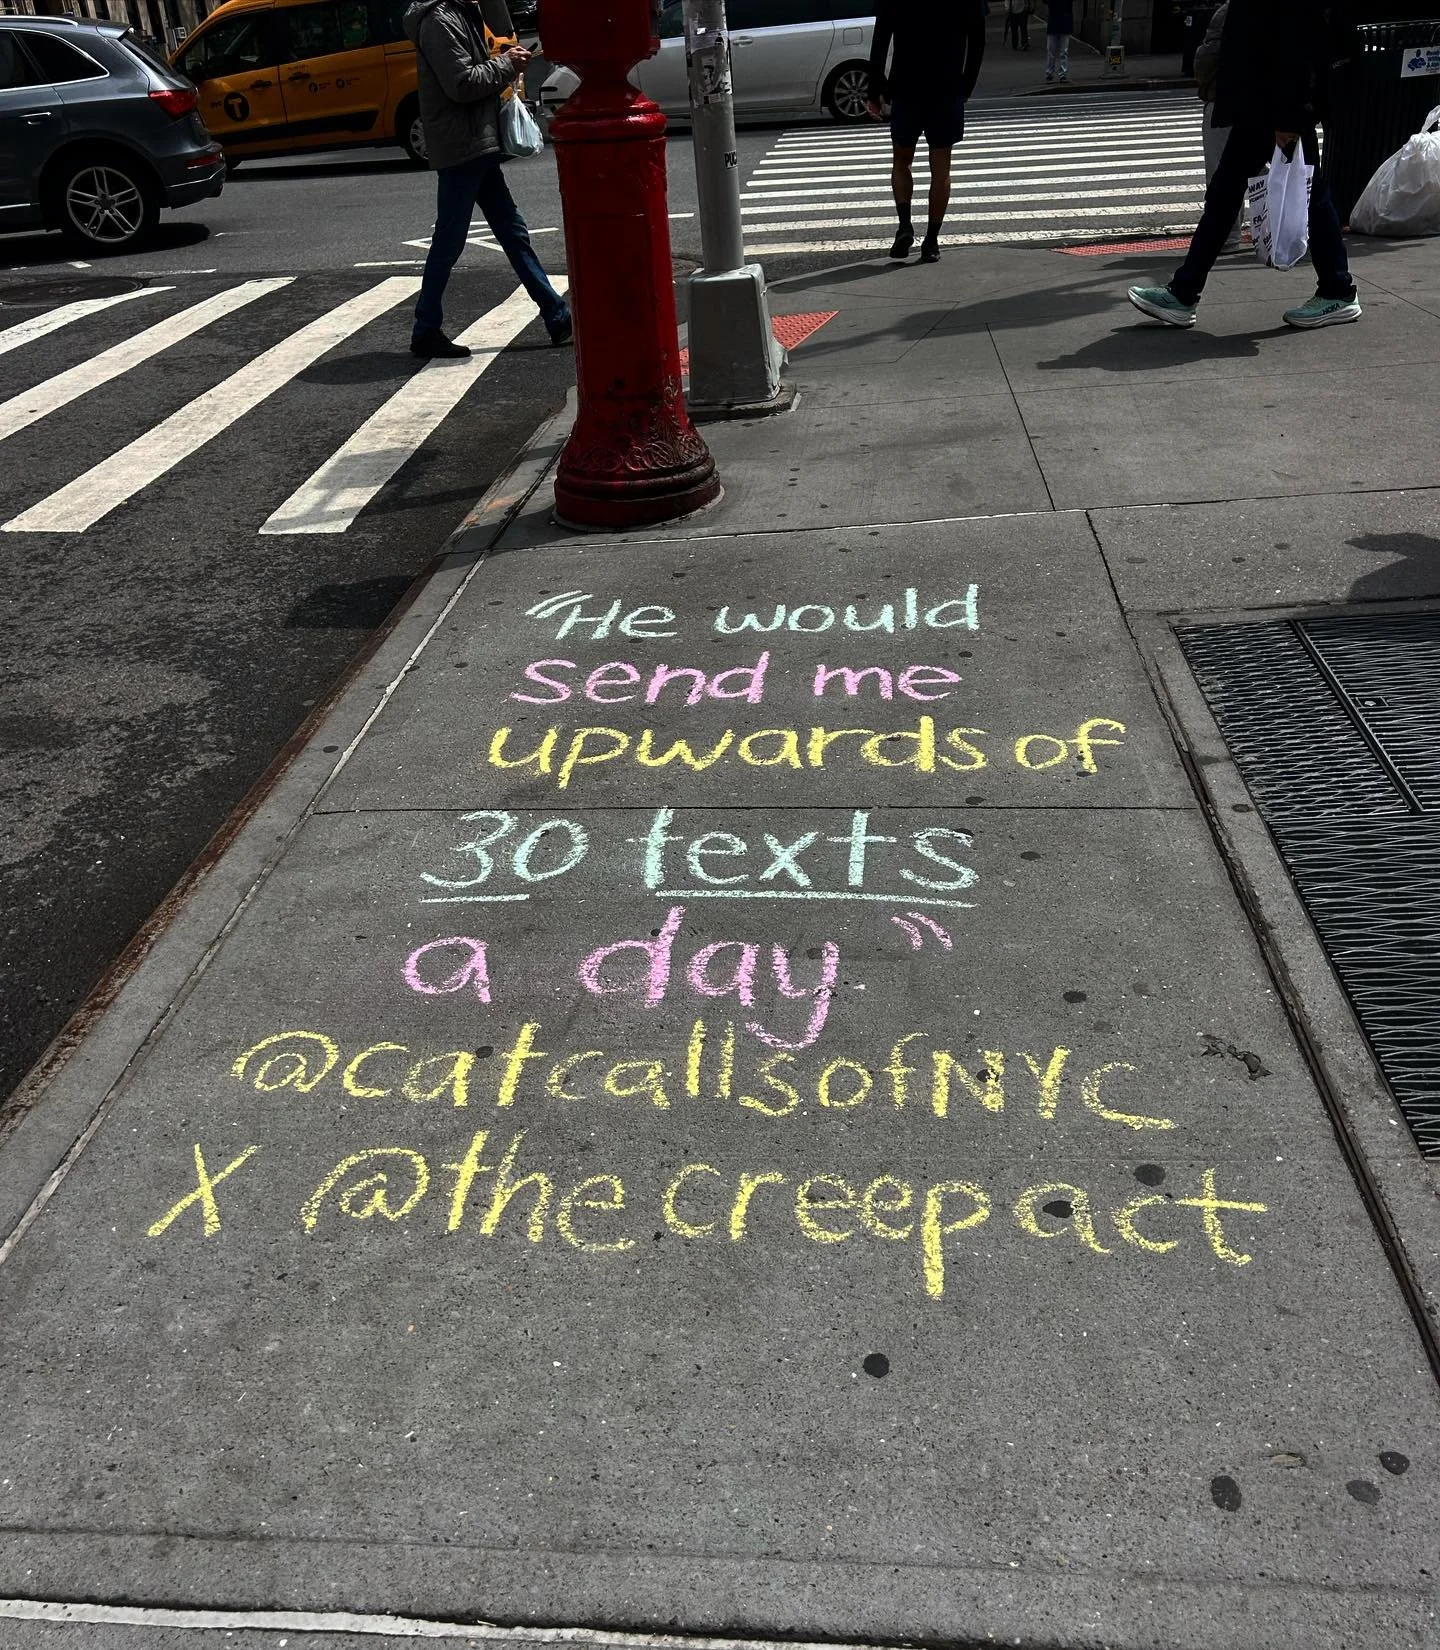 "He would
send me
upwards of
30 texts
a day"
@catcallsofNYC
X @thecreepact
NYC T
HOKA